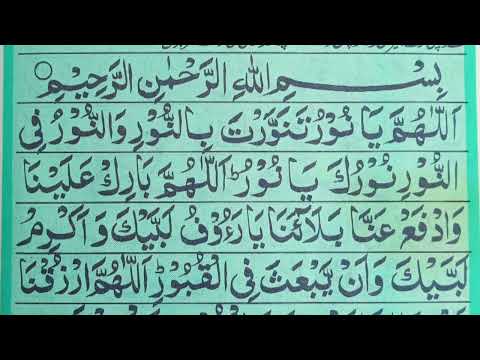 بِسْمِ اللهِ الرَّحْمٰنِ الرَّحِيْمِ
اَللّٰهُمَّ يَا نُوْرُ تَنَوَّرْتَ بِالنُّوْرِ وَالنُّوْرُ فِیْ
النُّوْرِ نُوْرُكَ يَا نُوْرُ ؕ اَللّٰهُمَّ بَارِكْ عَلَيْنَا
وَادْفَعْ عَنَّا بَلَآئَنَا يَا رَءُوْفُ لَبَّيْكَ وَ اَكْرِمْ
لَبَّيْكَ وَ اَنْ يَّبْعَثَ فِی الْقُبُوْرِ ؕ اَللّٰهُمَّ ارْزُقْنَا